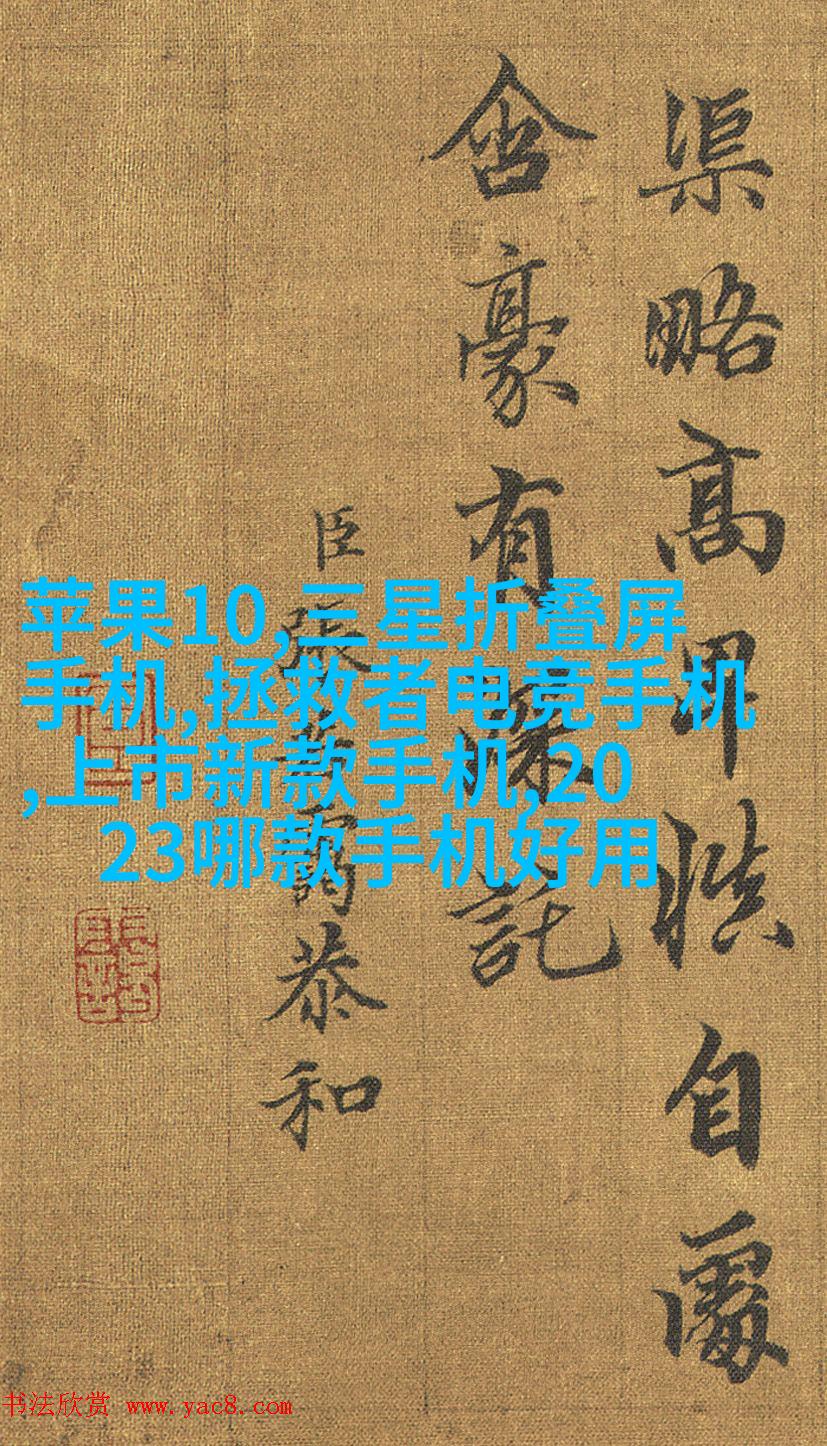 渠略高昇慎自處
含豪有深託
臣張若靄恭和
苹果10,三星折叠屏
手机,拯救者电竞手机
,上市新款手机,20
23哪款手机好用
书法欣赏 www.yac8.com